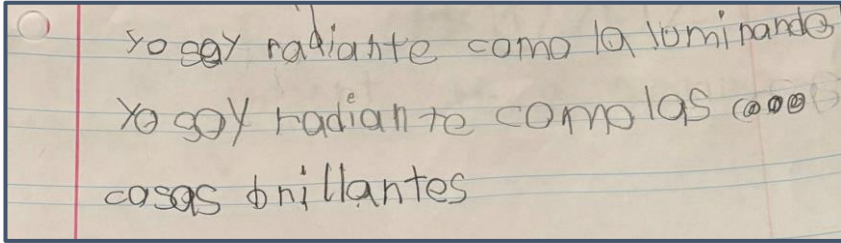 yo soy radiante como la luminando
yo soy radiante como las
cosas brillantes